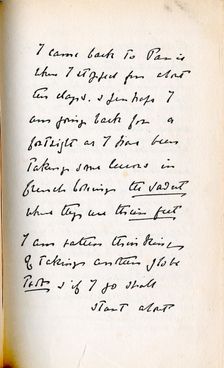 I came back to Paris
when I stopped for about
ten days. & perhaps I
am going back for a
fortnight as I have been
taking some lessons in
french boxing the savat
where they use their feet
I am rather thinking
of taking another globe
Trott & if I go shall
start about